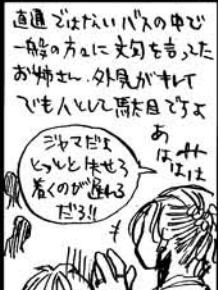 直通ではないバスの中で
一般の方々に文句を言ってた
お姉さん、外見がキレイ
でも人として駄目ですよ
あはははは
ジャマだよ
とっとと失せろ
着くのが遅れる
だろ!!